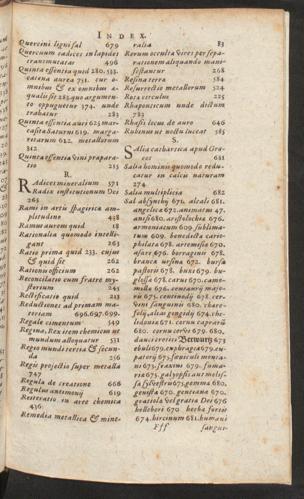 INDEX.
Quercini ligni sal 679
Quercuum radices in lapides
transmutatae 496
Quinta essentia quid 280. 533.
catena aurea 751. cur o-
mnibus & ex omnibus a-
qualis sit 282. quo argumen-
to oppugnetur 174. unde
trahatur 283
Quinta essentia auri 625 mar-
casita Saturni 619. marga-
ritarum 612. metallorum
312
Quinta essentia vini prepara-
tio 215
R.
Radices mineralium 571
Radix insectationum Dei
265
Rami in artis spagirica am-
plitudine 438
Ramus aureus quid 18
Rationalia quomodo intelli-
gant 263
Ratio prima quid 233. cujus
& quid sit 262
Rationis officium 262
Reconciliatio cum fratre my-
sterium 245
Rectificatio quid 213
Reductiones ad primam ma-
teriam 696. 697. 699.
Regale cimentum 549
Regina, Rex item chemicus ut
mundum alloquatur 531
Regio mundi tertia & secun-
da 256
Regis projectio super metalla
747
Regula de creatione 666
Regulus antimonij 619
Reiteratio in arte chemica
436
Remedia metallica & mine-
ralia 83
Rerum occulta vires per sepa-
rationem aliquando mani-
festantur 268
Resina terra 584
Resurrectio metallorum 524
Rota circulus 209
Rhaponticum unde dictum
783
Rhasis locus de auro 646
Rubinus ut noctu luceat 585
S.
Salia cathartica apud Gra-
cos 631
Salia hominis quomodo redu-
catur in calcu naturam
274
Salia multiplicia 682
Sal absynthij 671. alcali 681.
angelica 672. animatus 47.
anisi 680. aristolochia 676.
armoniacum 609. sublima-
tum 609. benedicta cario-
philata 678. artemisia 670.
asari 676. borraginis 678.
branca ursina 672. bursa
pastoris 678. buxi 679. bu-
glossa 678. carui 670. camo-
milla 676. centaurij majo-
ris 675. centinodij 678. cer-
vini sanguinis 680. charo-
folij, alias gengidij 674. che-
lidonia 671. cornu caprarij
680. cornu cervi 679. 680.
dauci cretici Berwurtz 678
ebuli 679. euphragia 679. eu-
patorij 675. foeniculi monta-
ni 673. fraxini 679. fuma-
ria 675. galyopsis aut meliss-
sa sylvestris 675. gemma 680.
genista 670. gentiana 670.
gratiola vel gratia Dei 676
hellebori 670 herba fortis
674. hircinum 681. humani
ff sangui-